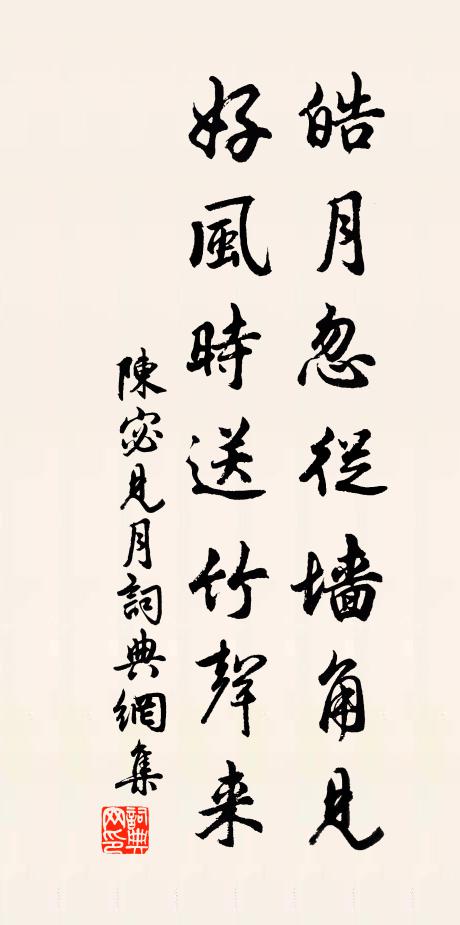 皓月忽從墙角見
好風時送竹聲来
陳宓見月詞典網集
詞典
网印